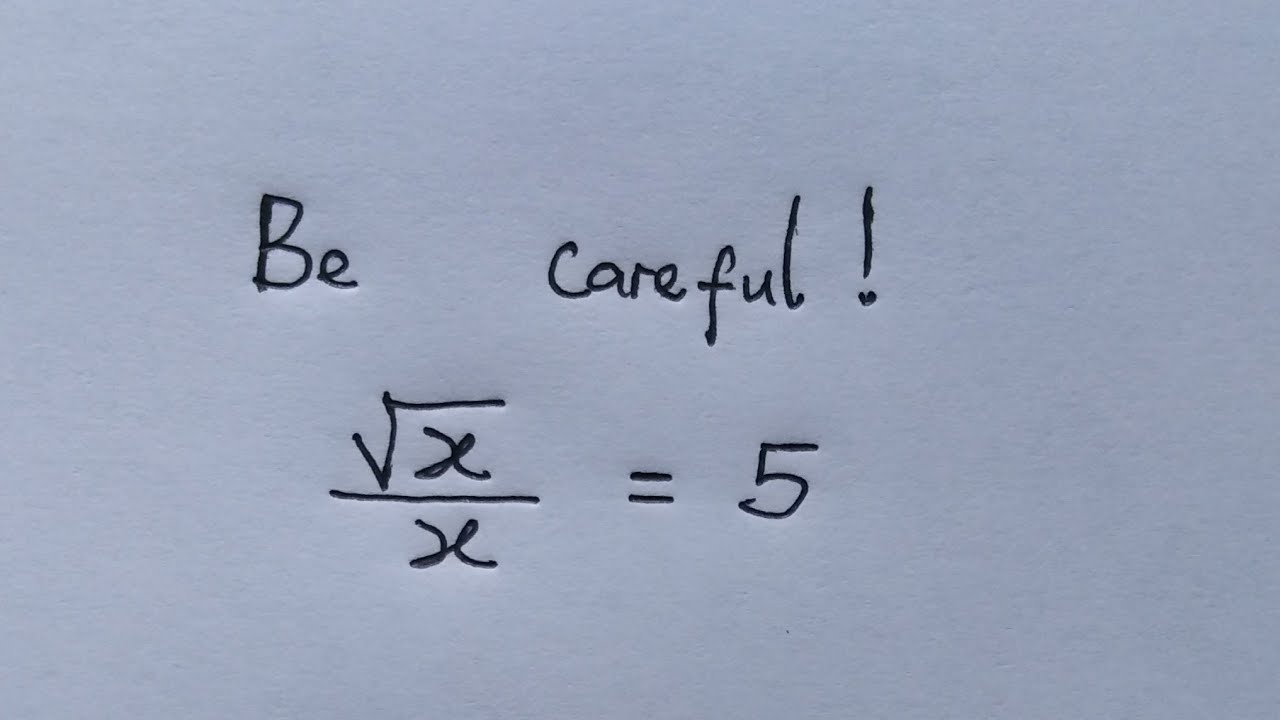 Be careful!
√x/x = 5